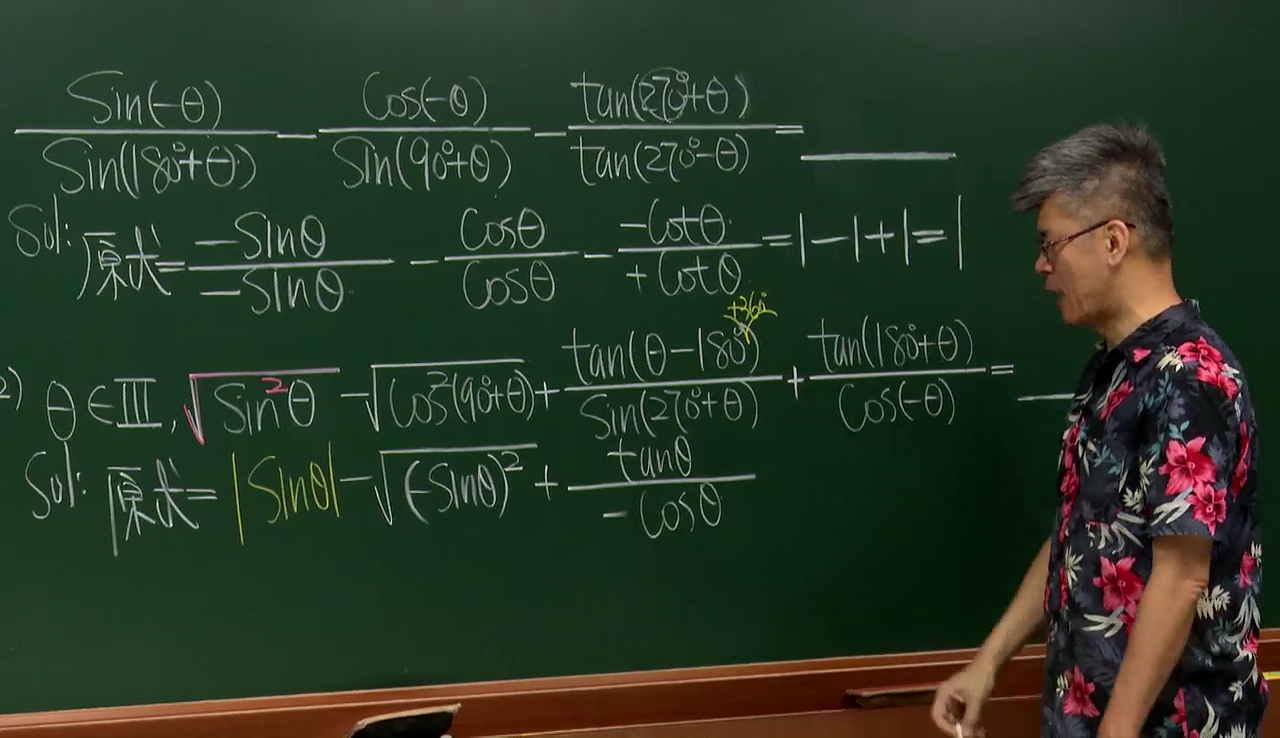 Sin(-θ)/Sin(180°+θ) - Cos(-θ)/Sin(90°+θ) - tan(270°+θ)/tan(270°-θ) = ____
Sol: 原式 = -Sinθ/-Sinθ - Cosθ/Cosθ - -Cotθ/+Cotθ = 1-1+1=1
+360°
2) θ∈III, √Sin²θ - √Cos²(90°+θ) + tan(θ-180°)/Sin(270°+θ) + tan(180°+θ)/Cos(-θ) = __
Sol: 原式 = |Sinθ| - √(-Sinθ)² + tanθ/-Cosθ